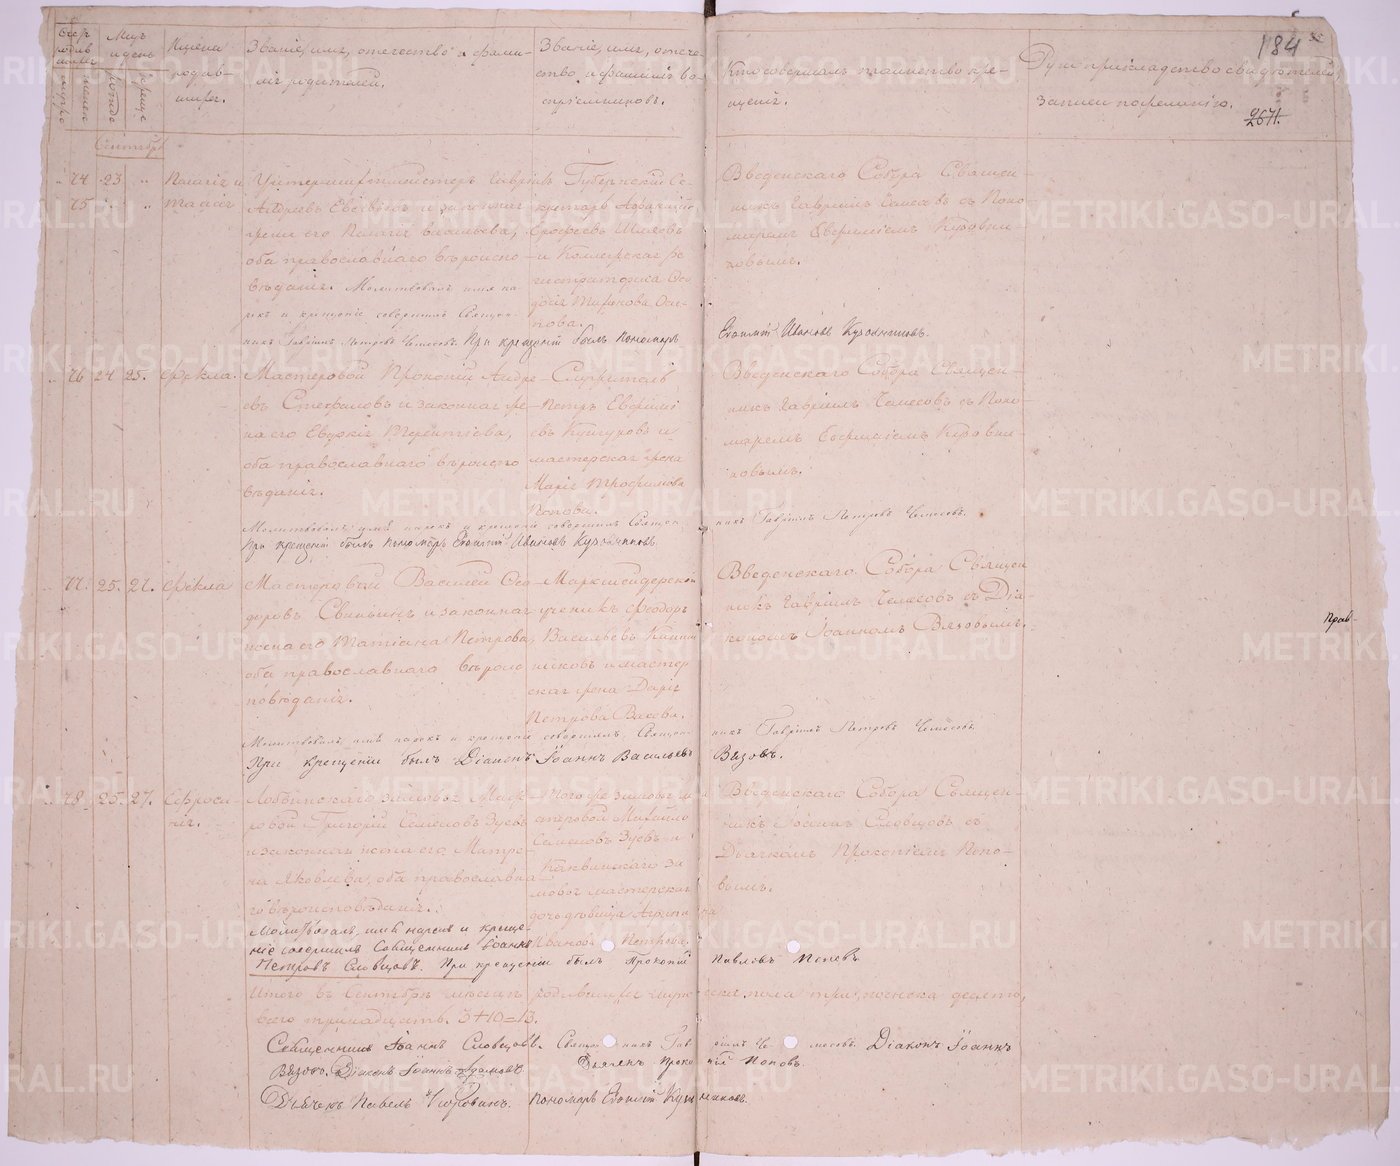 184
2671.
Счетъ родив шихся
мужес женска
Мѣсяцъ и день
рожде крещен
Имена родив-
шихся.
Званіе, имя, отечество и фами-
лія родителей.
Званіе, имя, отече-
ство и фамилія во-
спріемниковъ.
Кто совершалъ таинство кре-
щенія.
Рукоприкладство свидѣтелей
записи по желанію.
Сентябрь
74 23 Пелагія и
75 Таисія
Унтершихтмейстеръ Гавріилъ
Андреевъ Евсѣевъ и законная
жена его Пелагія Васильева,
оба православнаго вѣроиспо-
вѣданія. Молитвовалъ имя на-
рекъ и крещеніе совершилъ Священ-
никъ Гавріилъ Петровъ Чемесовъ. При крещеніи былъ пономарь
Губернскій Се-
кретарь
Ерофеевъ
и Коллежская Ре-
гистраторша
Введенскаго Собора Священ-
никъ Гавріилъ Чемесовъ съ Поно-
маремъ
Евфимій Ивановъ Кузовниковъ.
76 24 25. Ѳекла.
Мастеровой Прокопій Андре-
евъ Стефановъ и законная же-
на его Евдокія Терентіева,
оба православнаго вѣроиспо
вѣданія.
Молитвовалъ имя нарекъ и крещеніе совершилъ Священ-
При крещеніи былъ пономарь Евфимій Ивановъ Кузовниковъ.
Служитель
Петръ Евфимі
евъ Кунгуровъ и
мастерская жена
Марія Трофимова
Попова.
Введенскаго Собора Священ-
никъ Гавріилъ Чемесовъ съ Поно-
маремъ Евфиміемъ Кузовни-
ковымъ.
никъ Гавріилъ Петровъ Чемесовъ.
77. 25. 27. Ѳекла
Мастеровый Василей Ѳео-
доровъ Свиньинъ и законная
жена его Татіана Петрова,
оба православнаго вѣроис
повѣданія.
Молитвовалъ имя нарекъ и крещеніе совершилъ Священ-
При крещеніи былъ Діаконъ Іоаннъ Васильевъ
Маркшейдерской
ученикъ Ѳеодоръ
Васильевъ
никовъ и мастер
ская жена Дарія
Петрова
Введенскаго Собора Священ
никъ Гавріилъ Чемесовъ съ Діа-
кономъ Іоанномъ Вязовымъ.
никъ Гавріилъ Петровъ Чемесовъ
Вязовъ.
Прав-
78. 25. 27. Ефроси-
нія.
Лобвинскаго зимовья Масте-
ровой Григорій Семеновъ Зуевъ
и законная жена его Матро-
на Яковлева, оба православна
го вѣроисповѣданія.
Молитвовалъ, имя нарекъ и креще-
ніе совершилъ Священникъ Іоаннъ
Петровъ Словцовъ. При крещеніи былъ Прокопій
Того же зимовья м
астеровой Михайло
Семеновъ Зуевъ и
Каквинскаго зи
мовья мастерская
дочь дѣвица Агрипи на
Иванова Петкова.
Введенскаго Собора Священ-
никъ Іоаннъ Словцовъ съ
Дьячкомъ Прокопіемъ Попо-
вымъ.
Павловъ Поповъ
Итого въ Сентябрѣ мѣсяцѣ родившихся мужескаго пола три, женска десять,
всего тринадцать. 3+10=13.
Священникъ Іоаннъ Словцовъ. Священникъ Гавріилъ Чемесовъ. Діаконъ Іоаннъ
Вязовъ. Діаконъ Іоаннъ Дьячекъ Прокопій Поповъ.
Дьячекъ Павелъ Пономарь Евфимій Кузовниковъ.
METRIKI.GASO-URAL.RU